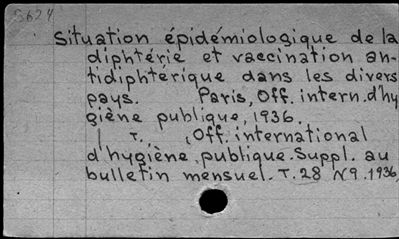 5624
Situation épidémiologique de la
diphtérie et vaccination an-
tidiphtérique dans les divers
pays. Paris, Off. intern. d'hy
giène publique, 1936.
T. , (Off. international
d'hygiène publique. Suppl. au
bulletin mensuel. T. 28 N9. 1936,